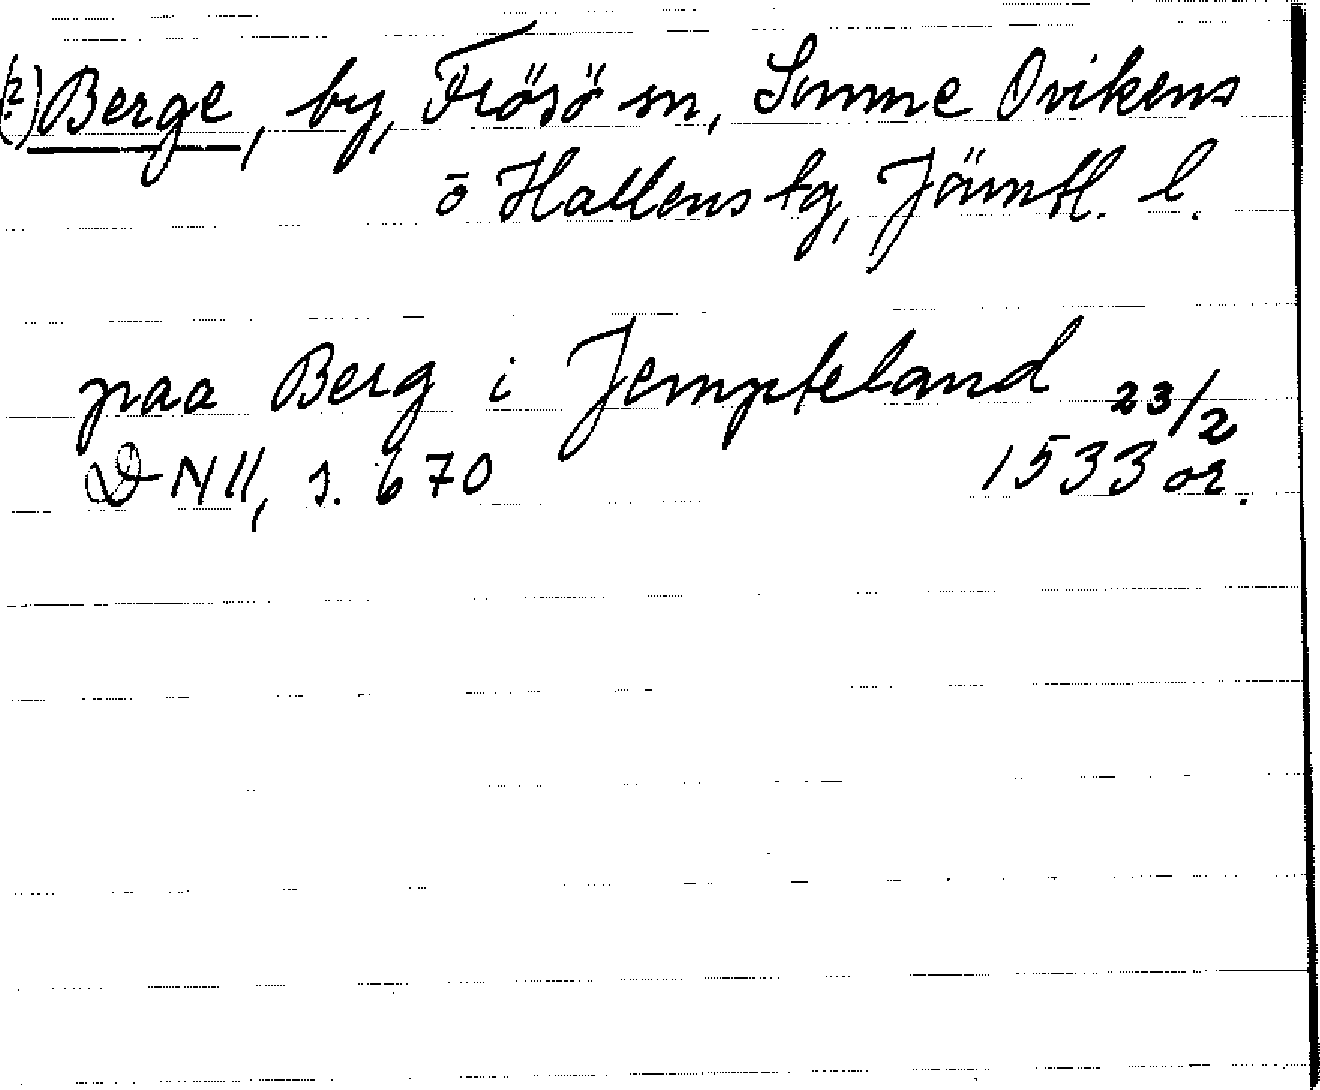 (?) Berge, by, Frösö sn, Sunne Ovikens
o Hallens tg, Jämtl. l.
paa Berg i Jempteland 23/2
DN II, s. 670 1533 or.